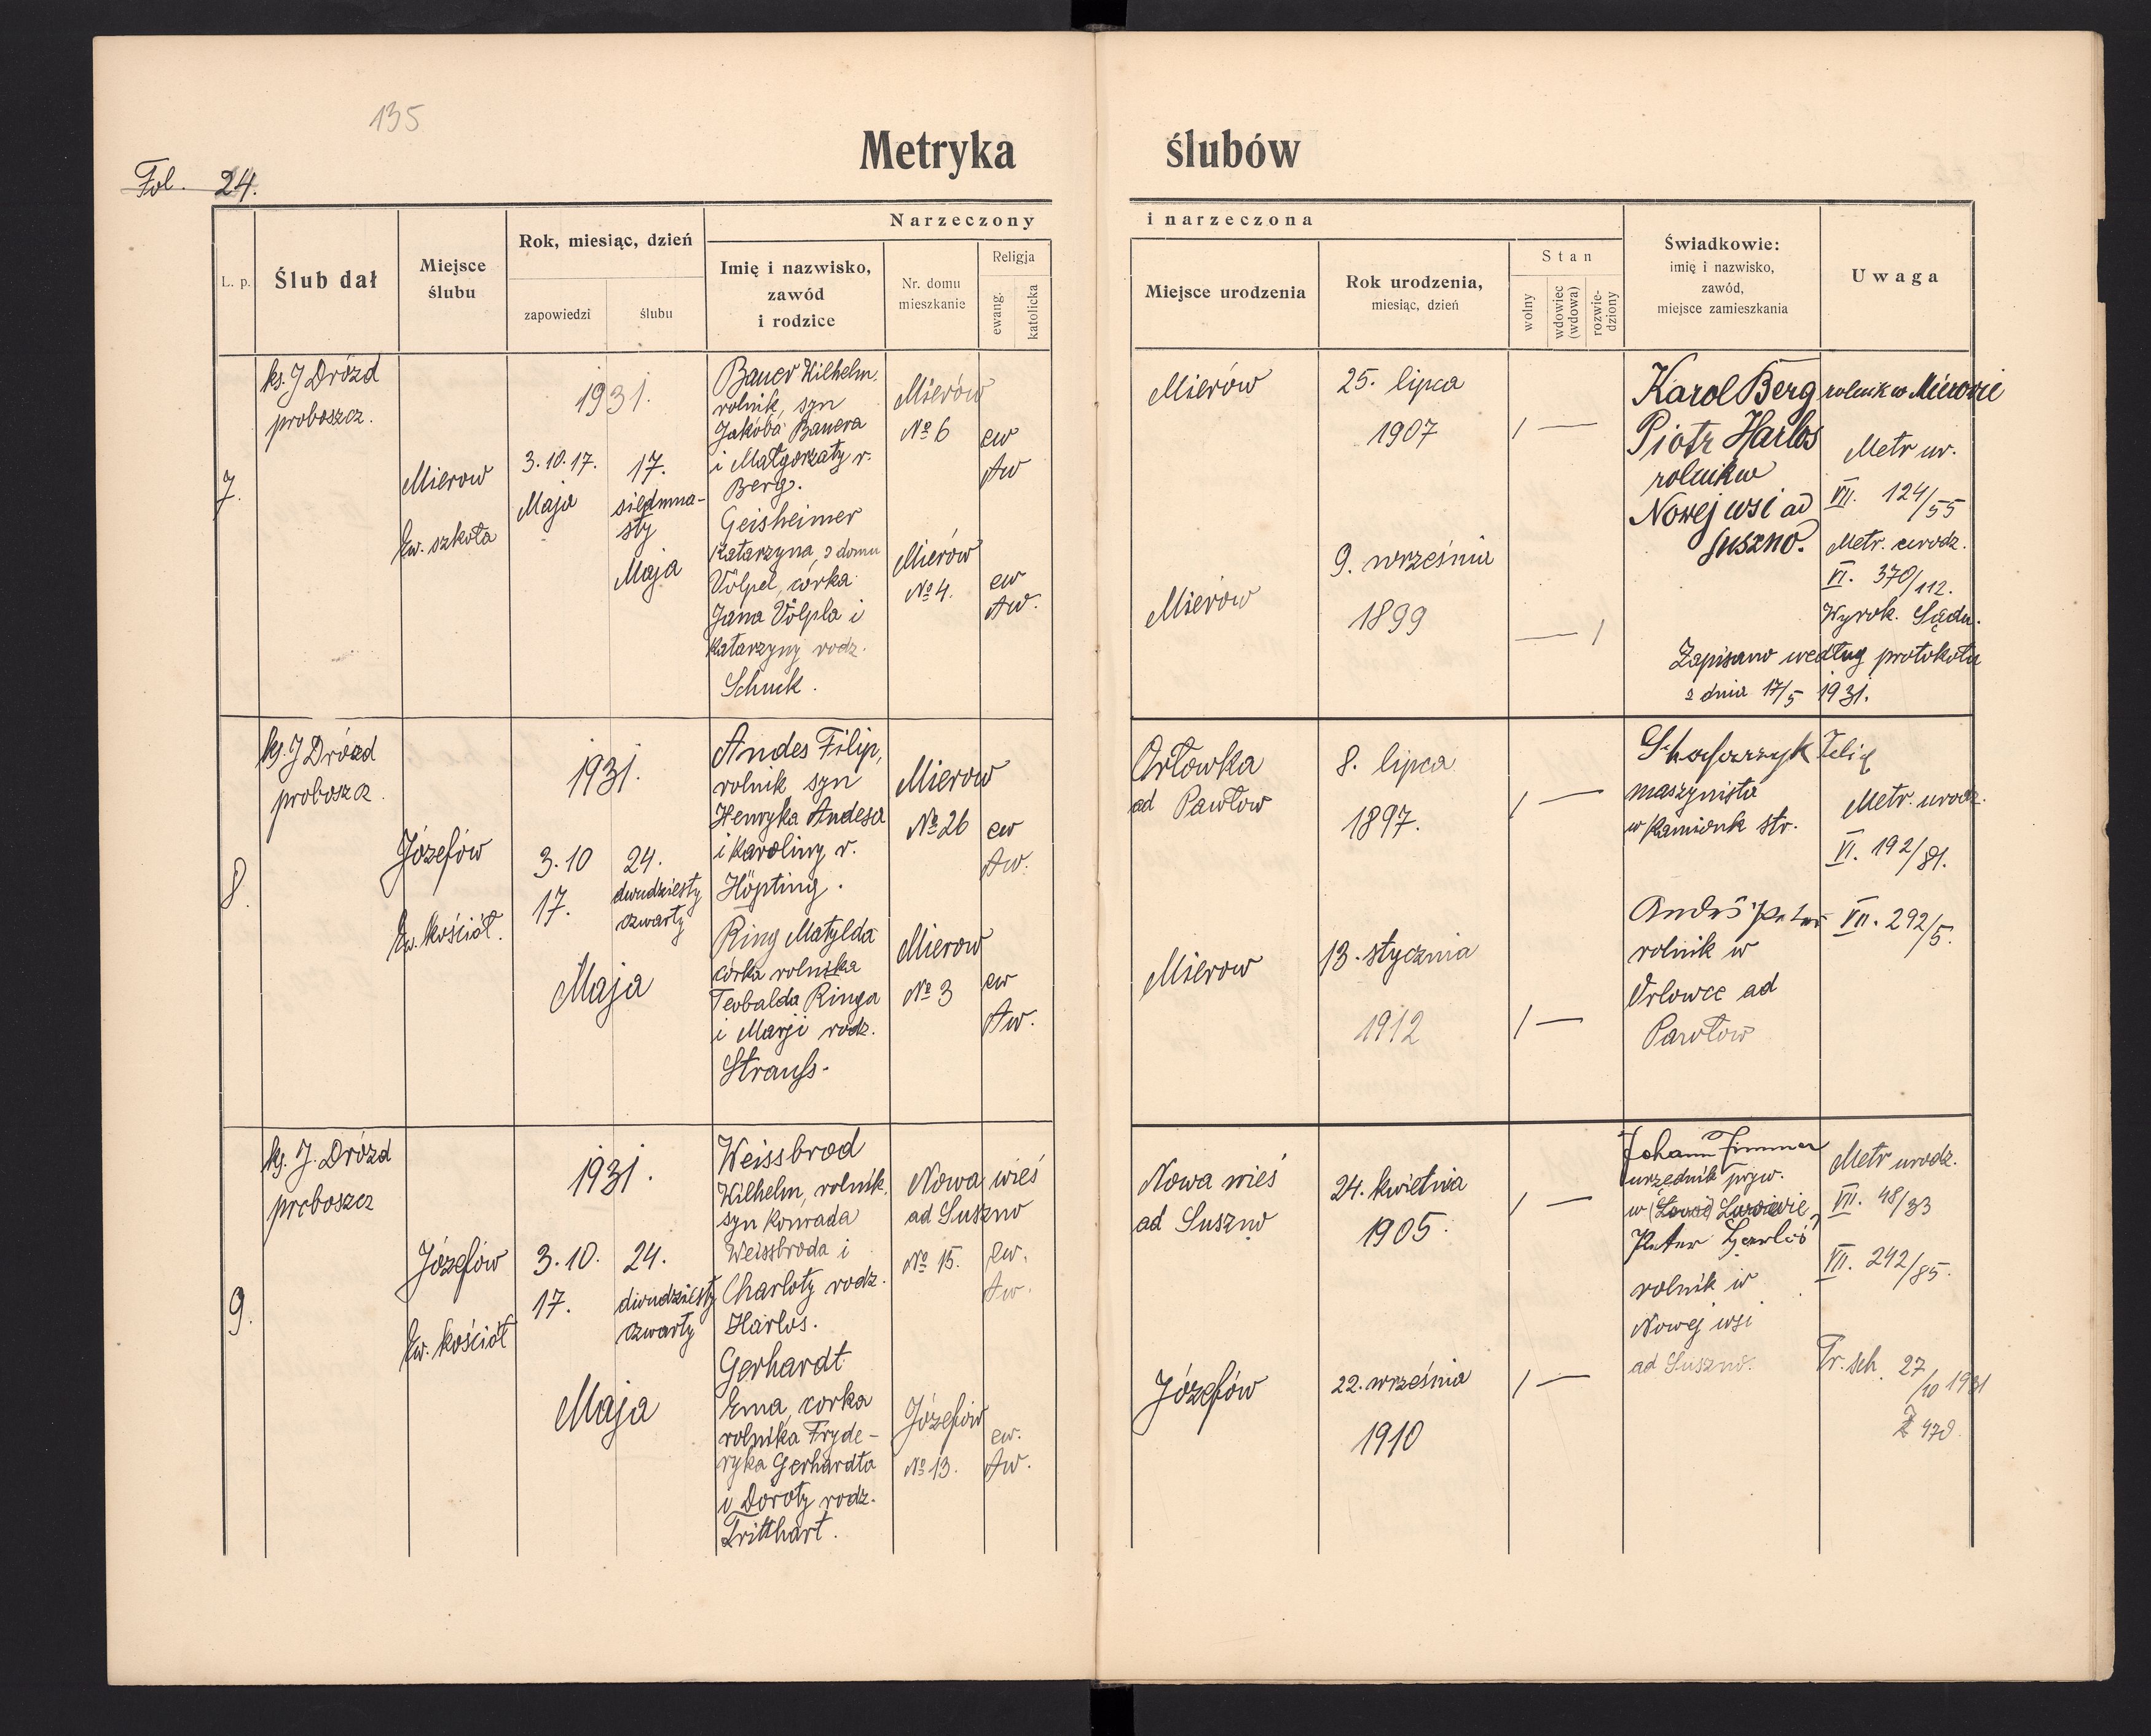 135
Fol. 24.
Metryka ślubów
L. p.
Ślub dał
Miejsce
ślubu
Rok, miesiąc, dzień
zapowiedzi
ślubu
Narzeczony
Imię i nazwisko,
zawód
i rodzice
Nr. domu
mieszkanie
Religja
ewang.
katolicka
i narzeczona
Miejsce urodzenia
Rok urodzenia,
miesiąc, dzień
Stan
wolny
wdowiec
(wdowa)
rozwie-
dziony
Świadkowie:
imię i nazwisko,
zawód,
miejsce zamieszkania
Uwaga
7.
ks. J Drózd
proboszcz.
Mierow
Ew. szkoła
1931.
3.10.17.
Maja
17.
siedmna-
sty
Maja
Bauer Wilhelm,
rolnik, syn
Jakóba Bauera
i Małgorzaty r.
Berg.
Mierów
№ 6
ew
Aw
Geisheimer
Katarzyna, z domu
Völpel, córka
Jana Völpla i
Katarzyny rodz.
Schuck.
Mierów
№ 4.
ew
Aw.
Mierów
25. lipca
1907
/ —
Mierów
9. września
1899
— /
Karol Berg rolnik w Mierowie
Piotr Harlos
rolnik w
Nowej wsi ad
Suszno.
Metr ur.
VII. 124/55
Metr. urodz.
VI. 370/112.
Wyrok. Sądu.
Zapisano według protokołu
z dnia 17/5 1931.
8.
ks. J Drózd
proboszcz.
Józefów
Ew. kościół.
1931.
3.10
17.
24.
dwudziesty
czwarty
Maja
Andes Filip,
rolnik syn
Henryka Andesa
i Karoliny r.
Höpting.
Mierow
№ 26
ew
Aw.
Ring Matylda
córka rolnika
Teobalda Ringa
i Marji rodz.
Strauss.
Mierow
№ 3
ew
Aw.
Orłowka
ad Pawłow
8. lipca
1897.
/ —
Mierow
13. stycznia
1912
/ —
maszynista
w Kamionk str.
rolnik w
Orlowce ad
Pawłow
Metr. urodz.
VI. 192/81.
VII. 292/5.
9.
ks. J. Drózd
proboszcz
Józefów
Ew. kościół
1931.
3.10.
17.
24.
dwudziesty
czwarty
Maja
Weissbrod
Wilhelm, rolnik,
syn Konrada
Weissbroda i
Charloty rodz.
Harlos.
Nowa wieś
ad Suszno
№ 15.
Ew.
Aw.
Gerhardt
Erna, corka
rolnika Fryde-
ryka Gerhardta
i Doroty rodz.
Tritthart.
Józefów
№ 13.
ew.
Aw.
Nowa wieś
ad Suszno
24. kwietnia
1905.
/ —
Józefów
22. września
1910
/ —
Johann Zimmer
urzędnik pryw.
rolnik w
Nowej wsi
ad Suszno.
Metr urodz.
VII. 48/33
VII. 242/85.
Tr. sch. 27/10 1931
Z 470.